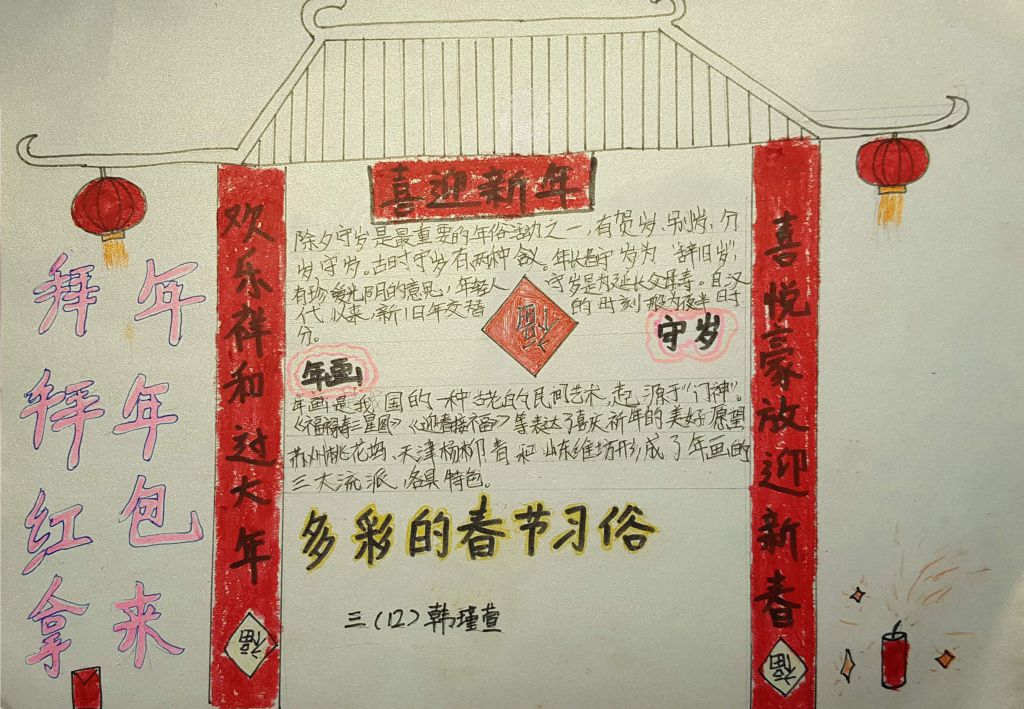 喜迎新年
欢乐祥和过大年
喜悦豪放迎新春
除夕守岁是最重要的年俗活动之一,有贺岁、别岁、分
岁、守岁。古时守岁有两种含义。年长者守岁为“辞旧岁”,
有珍爱光阴的意思,年轻人 守岁是为延长父母寿。自汉
代以来,新旧年交替 的时刻 般为夜半时
分。
守岁
福
年画
年画是我国的一种古老的民间艺术,起源于“门神”。
《福禄寿三星图》《迎春接福》等表达了喜庆祈年的美好愿望
苏州桃花坞、天津杨柳青和山东维坊形成了年画的
三大流派,各具特色。
多彩的春节习俗
三(12)韩瑾萱
拜年
拜年
红包
拿来
福
福